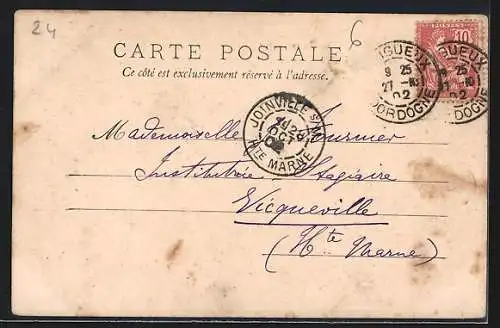 24
6
CARTE POSTALE
Ce côté est exclusivement réservé à l'adresse.
10
IGUEUX
9 25
27 -10
02
DORDOGNE
GUEUX
25
02
DOGNE
JOINVILLE S/MNE
28
OCT
02
HTE MARNE
Mademoiselle Fournier
Institutrice Stagiaire
Vicqueville
(Hte Marne)